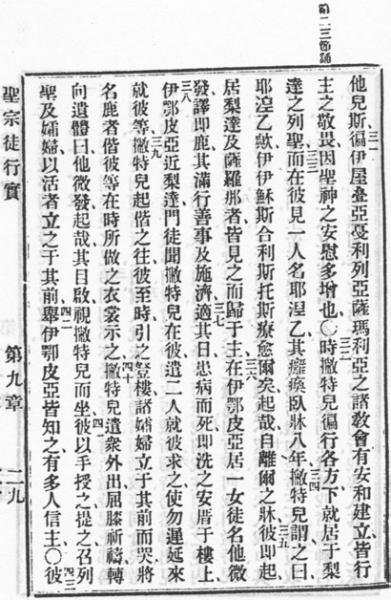 第二三節誦
他兒斯三一徧伊屋疊亞戛利列亞薩瑪利亞之諸教會有安和建立皆行
主之敬畏因聖神之安慰多增也〇三二時撇特兒徧行各方下就居于梨
達之列聖三三而在彼見一人名耶湼乙其癱瘓臥牀八年三四撇特兒謂之曰
耶湼乙歟伊伊穌斯合利斯托斯療愈爾矣起哉自離爾之牀彼即起三五
居梨達及薩羅那者皆見之而歸于主三六在伊鄂皮亞居一女徒名他微
發譯即鹿其滿行善事及施濟三七適其日患病而死即洗之安厝于樓上
三八伊鄂皮亞近梨達門徒聞撇特兒在彼遣二人就彼求之使勿遲延來
就彼等三九撇特兒起偕之往彼至時引之登樓諸孀婦立于其前而哭將
名鹿者偕彼等在時所做之衣裳示之四十撇特兒遣衆外出屈膝祈禱轉
向遺體曰他微發起哉其目啟視撇特兒而坐四一彼以手授之提之召列
聖及孀婦以活者立之于其前四二舉伊鄂皮亞皆知之有多人信主〇四三彼
聖宗徒行實 第九章 二九